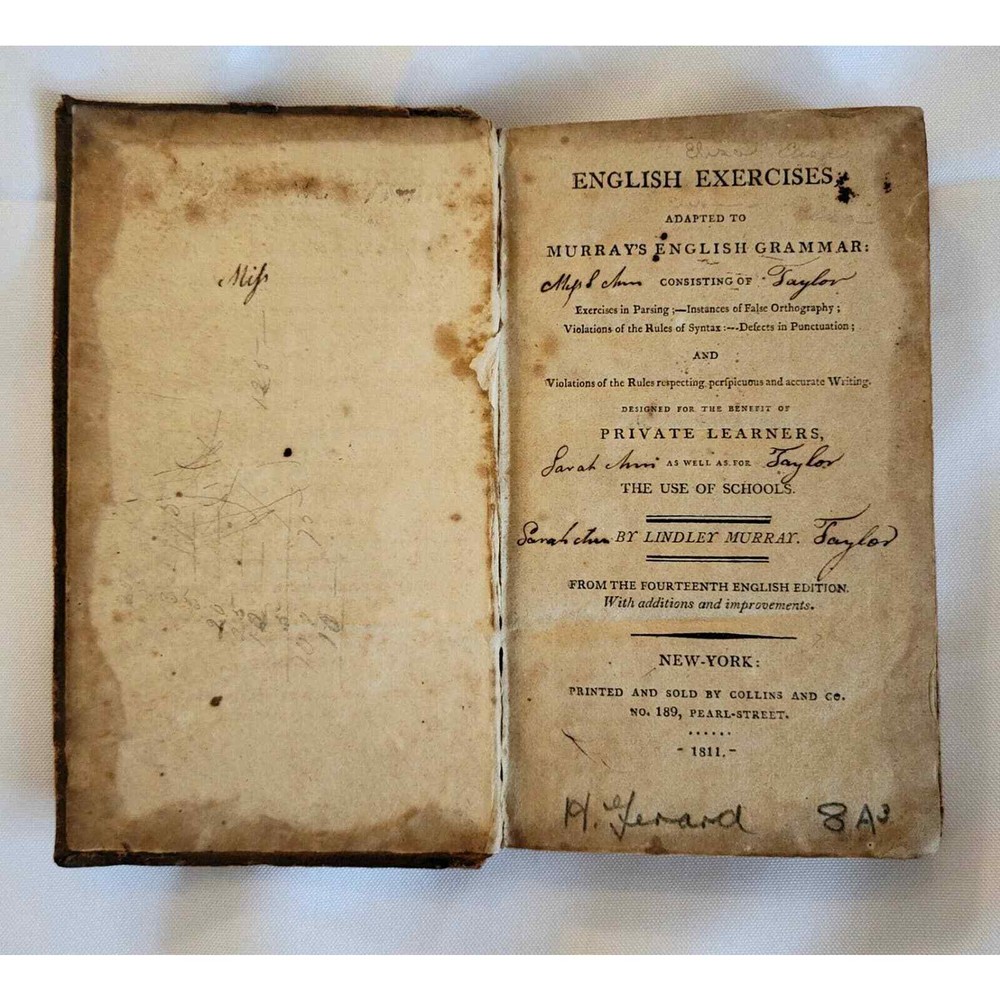 Miſs
ENGLISH EXERCISES,
ADAPTED TO
MURRAY'S ENGLISH GRAMMAR:
Miſs S Ann CONSISTING OF Taylor
Exercises in Parsing;—Instances of False Orthography;
Violations of the Rules of Syntax:—Defects in Punctuation;
AND
Violations of the Rules respecting perſpicuous and accurate Writing.
DESIGNED FOR THE BENEFIT OF
PRIVATE LEARNERS,
Sarah Ann AS WELL AS FOR Taylor
THE USE OF SCHOOLS.
Sarah Ann BY LINDLEY MURRAY. Taylor
FROM THE FOURTEENTH ENGLISH EDITION.
With additions and improvements.
NEW-YORK:
PRINTED AND SOLD BY COLLINS AND CO.
NO. 189, PEARL-STREET.
......
- 1811. -
H. Gerard 8A3